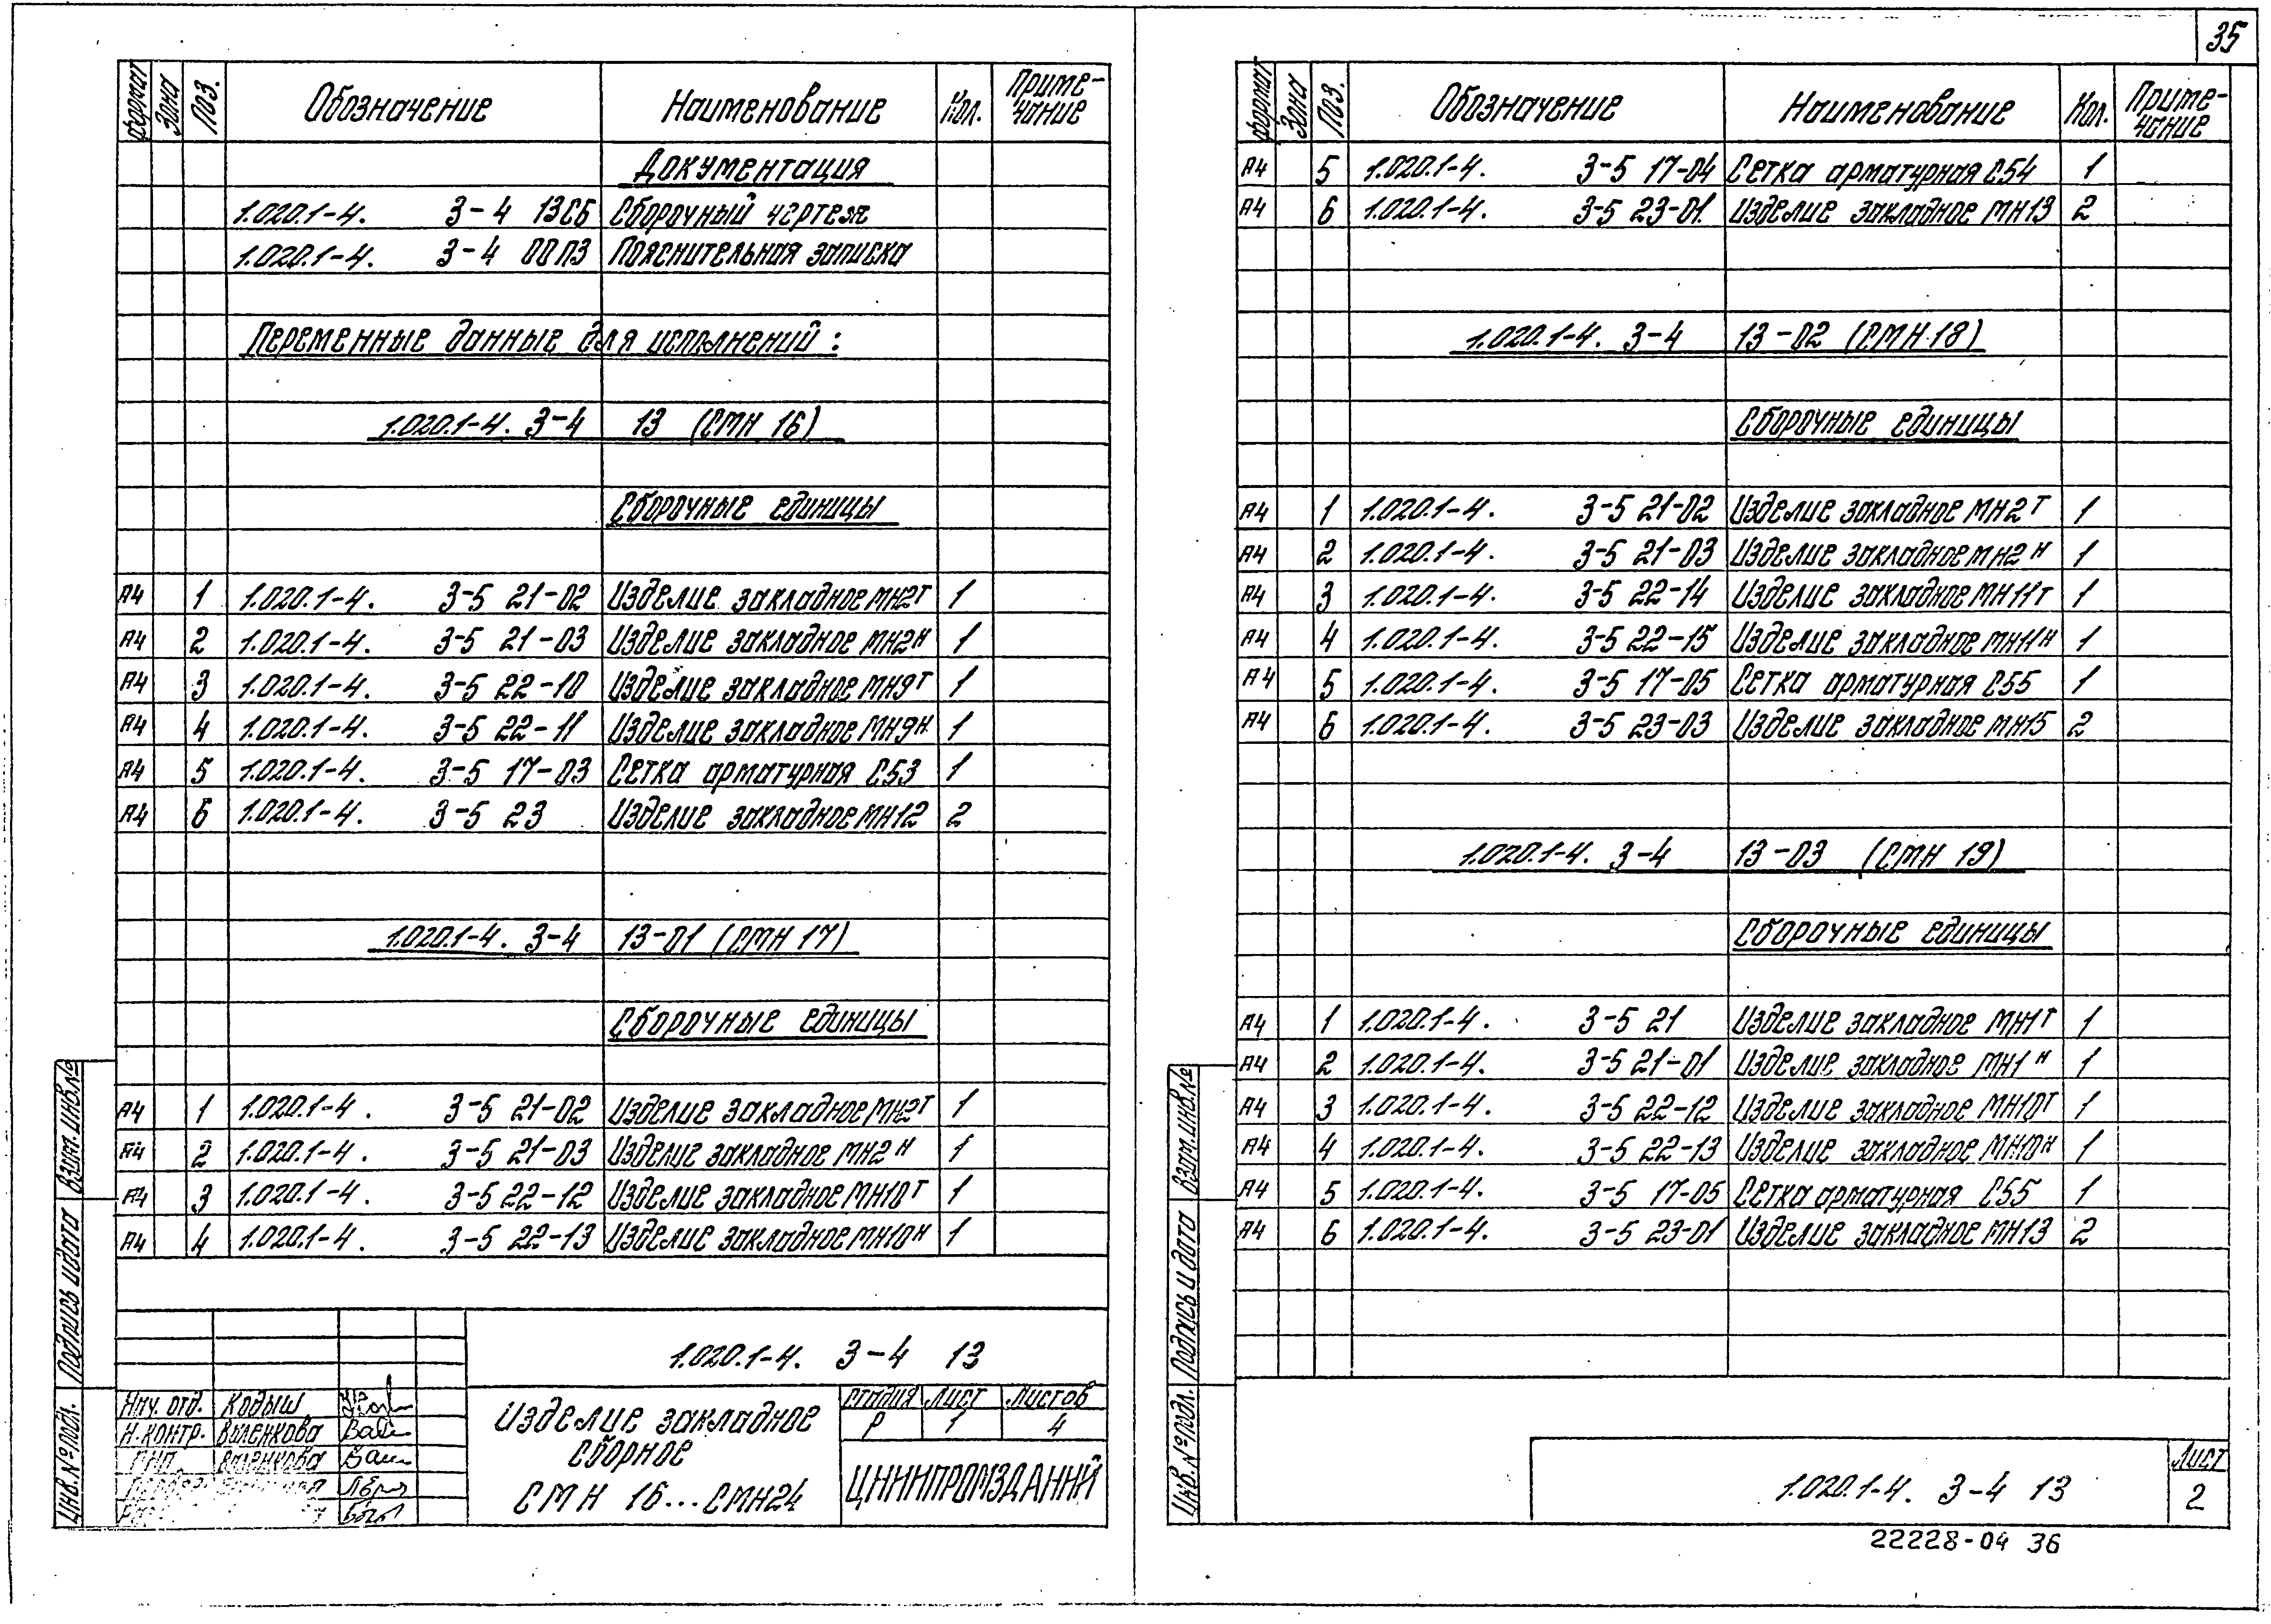 35
Формат Зона Поз. Обозначение Наименование Кол. Приме-чание
Документация
1.020.1-4. 3-4 13СБ Сборочный чертеж
1.020.1-4. 3-4 00ПЗ Пояснительная записка
Переменные данные для исполнений:
1.020.1-4. 3-4 13 (СМН 16)
Сборочные единицы
А4 1 1.020.1-4. 3-5 21-02 Изделие закладное МН2т 1
А4 2 1.020.1-4. 3-5 21-03 Изделие закладное МН2н 1
А4 3 1.020.1-4. 3-5 22-10 Изделие закладное МН9т 1
А4 4 1.020.1-4. 3-5 22-11 Изделие закладное МН9н 1
А4 5 1.020.1-4. 3-5 17-03 Сетка арматурная С53 1
А4 6 1.020.1-4. 3-5 23 Изделие закладное МН12 2
1.020.1-4. 3-4 13-01 (СМН 17)
Сборочные единицы
А4 1 1.020.1-4. 3-5 21-02 Изделие закладное МН2т 1
А4 2 1.020.1-4. 3-5 21-03 Изделие закладное МН2н 1
А4 3 1.020.1-4. 3-5 22-12 Изделие закладное МН10т 1
А4 4 1.020.1-4. 3-5 22-13 Изделие закладное МН10н 1
Инв.№подл. Подпись и дата Взам.инв.№
1.020.1-4. 3-4 13
Нач. отд. Кодыш
Н.контр. Валенкова
ГИП Валенкова
Изделие закладное
сборное
СМН 16...СМН24
Стадия Лист Листов
Р 1 4
ЦНИИПРОМЗДАНИЙ
Формат Зона Поз. Обозначение Наименование Кол. Приме-чание
А4 5 1.020.1-4. 3-5 17-04 Сетка арматурная С54 1
А4 6 1.020.1-4. 3-5 23-01 Изделие закладное МН13 2
1.020.1-4. 3-4 13-02 (СМН 18)
Сборочные единицы
А4 1 1.020.1-4. 3-5 21-02 Изделие закладное МН2т 1
А4 2 1.020.1-4. 3-5 21-03 Изделие закладное МН2н 1
А4 3 1.020.1-4. 3-5 22-14 Изделие закладное МН11т 1
А4 4 1.020.1-4. 3-5 22-15 Изделие закладное МН11н 1
А4 5 1.020.1-4. 3-5 17-05 Сетка арматурная С55 1
А4 6 1.020.1-4. 3-5 23-03 Изделие закладное МН15 2
1.020.1-4. 3-4 13-03 (СМН 19)
Сборочные единицы
А4 1 1.020.1-4. 3-5 21 Изделие закладное МН1т 1
А4 2 1.020.1-4. 3-5 21-01 Изделие закладное МН1н 1
А4 3 1.020.1-4. 3-5 22-12 Изделие закладное МН10т 1
А4 4 1.020.1-4. 3-5 22-13 Изделие закладное МН10н 1
А4 5 1.020.1-4. 3-5 17-05 Сетка арматурная С55 1
А4 6 1.020.1-4. 3-5 23-01 Изделие закладное МН13 2
Инв.№подл. Подпись и дата Взам.инв.№
1.020.1-4. 3-4 13
Лист
2
22228-04 36